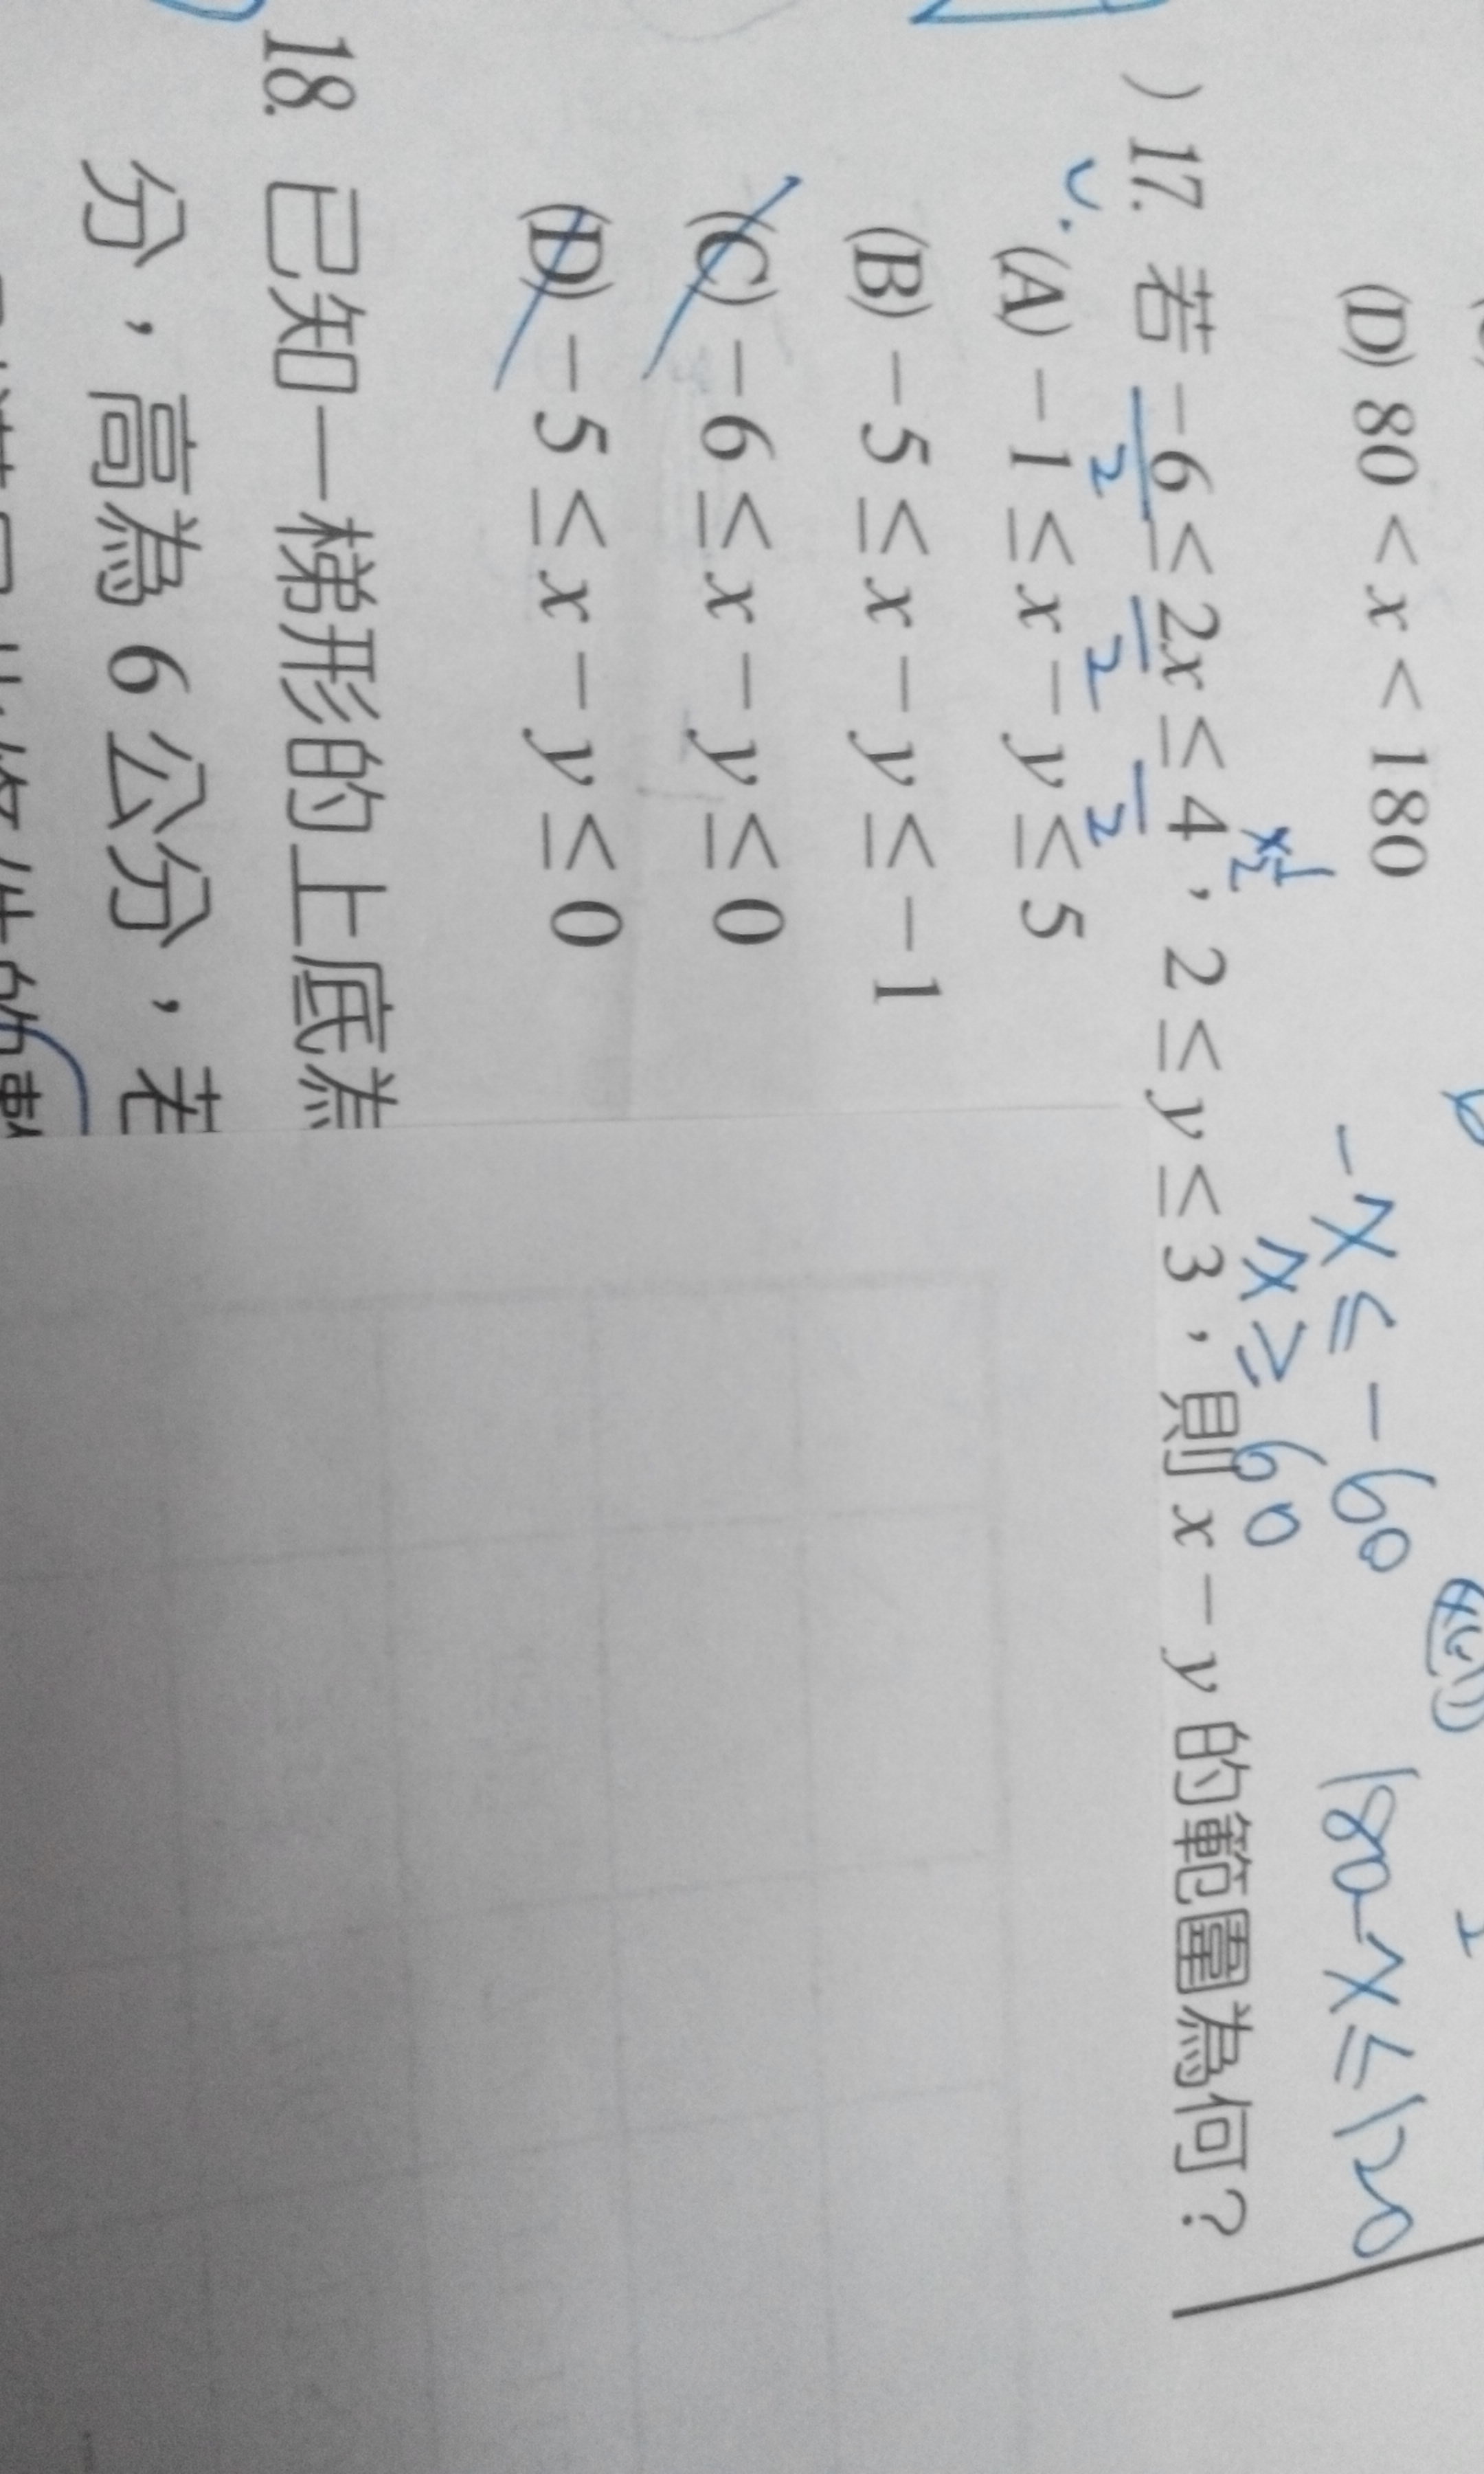 (D) 80 < x < 180
-x ≤ -60
180-x ≤ 120
x ≥ 60
) 17. 若 -6 ≤ 2x ≤ 4，2 ≤ y ≤ 3，則 x - y 的範圍為何？
x 1/2
2 2 2
(A) -1 ≤ x - y ≤ 5
(B) -5 ≤ x - y ≤ -1
(C) -6 ≤ x - y ≤ 0
(D) -5 ≤ x - y ≤ 0
18. 已知一梯形的上底為
分，高為 6 公分，若